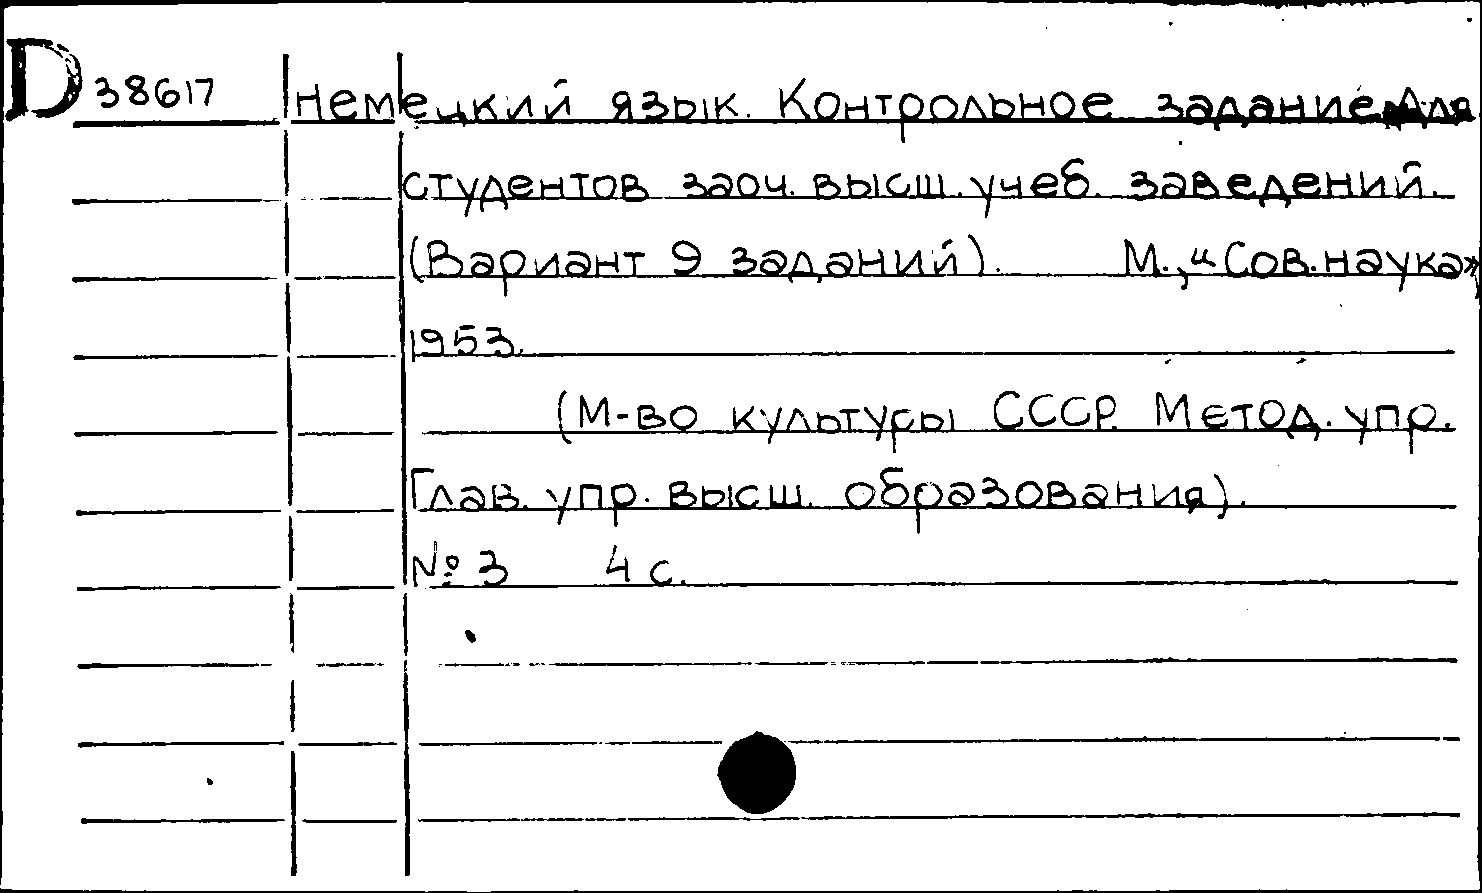 D 38617 Немецкий язык. Контрольное задание для
студентов заоч. высш. учеб. заведений.
(Вариант 9 заданий). М., "Сов. наука»
1953.
(М-во культуры СССР. Метод. упр.
Глав. упр. высш. образования).
№ 3 4 с.